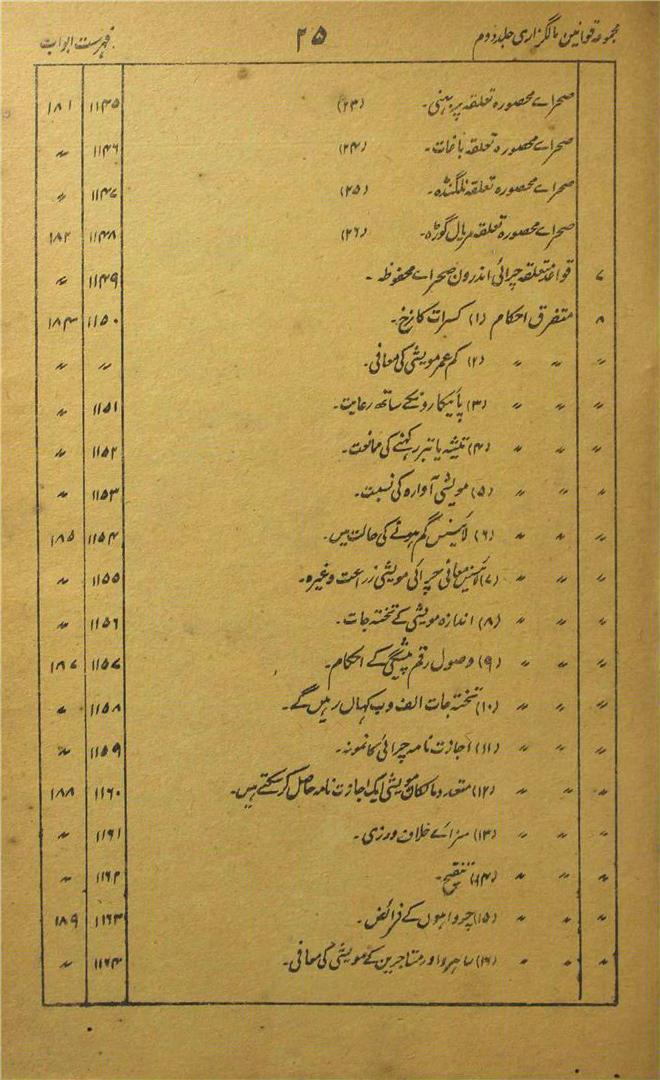 مجموعہ قوانین مالگزاری جلد دوم ۲۵ فہرست ابواب
صحراے محصورہ تعلقہ پربہنی۔ (۲۳) ۱۱۴۵ ۱۸۱
صحراے محصورہ تعلقہ باغات۔ (۲۴) ۱۱۴۶ 〃
صحراے محصورہ تعلقہ نلگنڈہ۔ (۲۵) ۱۱۴۷ 〃
صحراے محصورہ تعلقہ مریال گوڑہ۔ (۲۶) ۱۱۴۸ ۱۸۲
۷ قواعد متعلقہ چرائی اندرون صحراے محفوظہ ۔ ۱۱۴۹ 〃
۸ متفرق احکام (۱) کسرات کا نرخ۔ ۱۱۵۰ ۱۸۴
〃 〃 〃 (۲) کم عمر مویشی کی معافی۔ 〃 〃
〃 〃 〃 (۳) پائیگا رونکے ساتھ رعایت۔ ۱۱۵۱ 〃
〃 〃 〃 (۴) تیشہ یا تبر رکہنے کی ممانعت۔ ۱۱۵۲ 〃
〃 〃 〃 (۵) مویشی آوارہ کی نسبت۔ ۱۱۵۳ 〃
〃 〃 〃 (۶) لائسنس گم ہونے کی حالت میں۔ ۱۱۵۴ ۱۸۵
〃 〃 〃 (۷) لائسنس معافی چرائی مویشی زراعت وغیرہ۔ ۱۱۵۵ 〃
〃 〃 〃 (۸) اندازہ مویشی کے تختہ جات۔ ۱۱۵۶ 〃
〃 〃 〃 (۹) وصول رقم پیشگی کے احکام۔ ۱۱۵۷ ۱۸۷
〃 〃 〃 (۱۰) تختہ جات الف و ب کہاں رہیں گے۔ ۱۱۵۸ 〃
〃 〃 〃 (۱۱) اجازت نامہ چرائی کا نمونہ۔ ۱۱۵۹ 〃
〃 〃 〃 (۱۲) متعدد مالکان مویشی ایک اجازت نامہ حاصل کرسکتے ہیں۔ ۱۱۶۰ ۱۸۸
〃 〃 〃 (۱۳) سزاے خلاف ورزی۔ ۱۱۶۱ 〃
〃 〃 〃 (۱۴) تنقیح۔ ۱۱۶۲ 〃
〃 〃 〃 (۱۵) چرواہوں کے فرائض۔ ۱۱۶۳ ۱۸۹
〃 〃 〃 (۱۶) ساہروا ورمستاجرین کے مویشی کی معافی۔ ۱۱۶۴ 〃